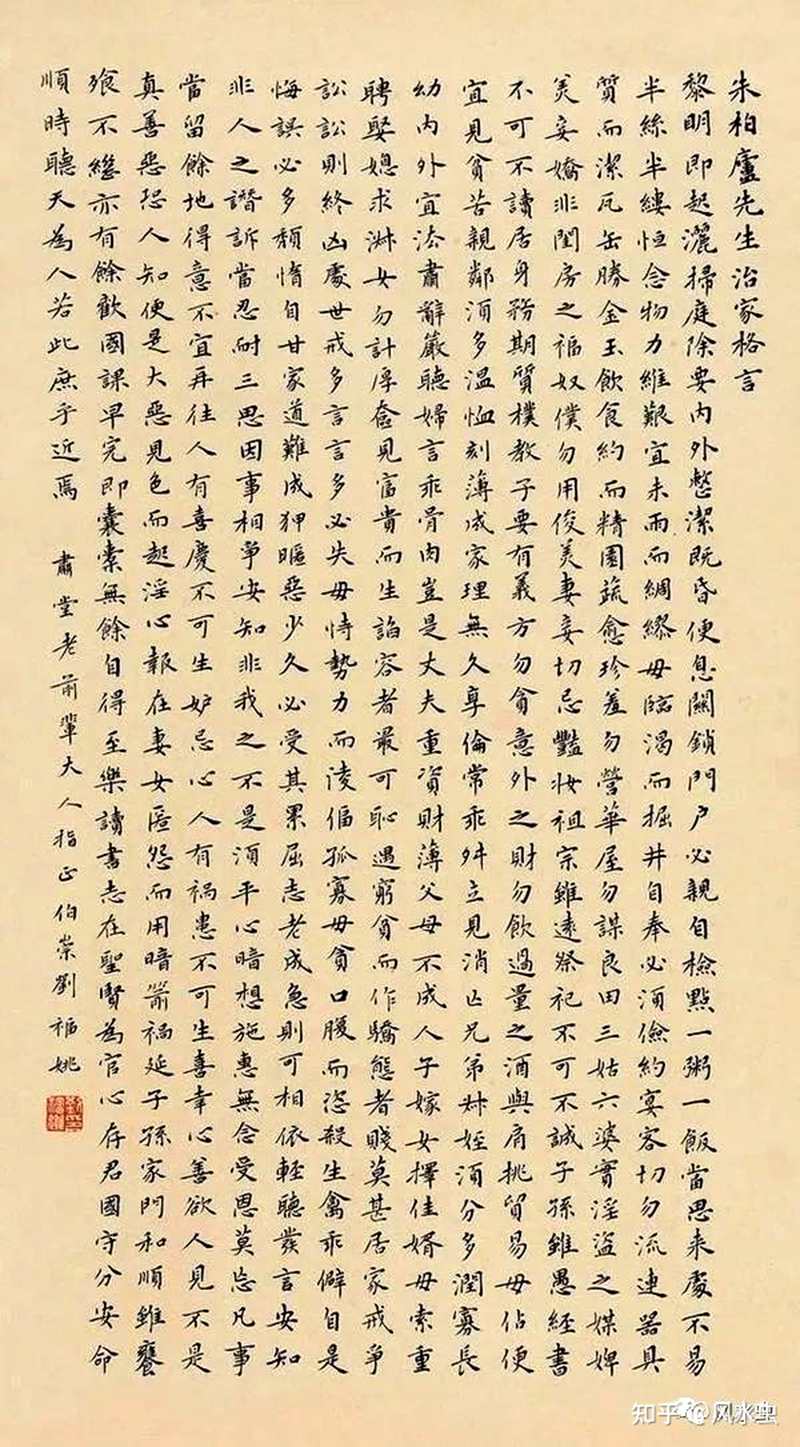 朱柏廬先生治家格言
黎明即起灑掃庭除要内外整潔既昏便息關鎖門户必親自檢點一粥一飯當思来處不易
半絲半縷恒念物力維艱宜未雨而綢繆毋臨渴而掘井自奉必須儉約宴客切勿流連器具
質而潔瓦缶勝金玉飲食約而精園蔬愈珍羞勿營華屋勿謀良田三姑六婆實淫盜之媒婢
美妾嬌非閨房之福奴僕勿用俊美妻妾切忌豔妝祖宗雖遠祭祀不可不誠子孫雖愚經書
不可不讀居身務期質樸教子要有義方勿貪意外之財勿飲過量之酒與肩挑貿易毋佔便
宜見貧苦親鄰須多温恤刻薄成家理無久享倫常乖舛立見消亡兄弟叔姪須分多潤寡長
幼内外宜法肅辭嚴聽婦言乖骨肉豈是丈夫重資財薄父母不成人子嫁女擇佳婿毋索重
聘娶媳求淑女勿計厚奩見富貴而生諂容者最可恥遇窮貧而作驕態者賤莫甚居家戒爭
訟訟則終凶處世戒多言言多必失毋恃勢力而淩偪孤寡毋貪口腹而恣殺生禽乖僻自是
悔誤必多頹惰自甘家道難成狎暱惡少久必受其累屈志老成急則可相依輕聽發言安知
非人之譖訴當忍耐三思因事相爭安知非我之不是須平心暗想施惠無念受恩莫忘凡事
當留餘地得意不宜再往人有喜慶不可生妒忌心人有禍患不可生喜幸心善欲人見不是
真善惡恐人知便是大惡見色而起淫心報在妻女匿怨而用暗箭禍延子孫家門和順雖饔
飧不繼亦有餘歡國課早完即囊橐無餘自得至樂讀書志在聖賢為官心存君國守分安命
順時聽天為人若此庶乎近焉 肅堂老前輩大人指正伯崇劉福姚
知乎 @风水虫